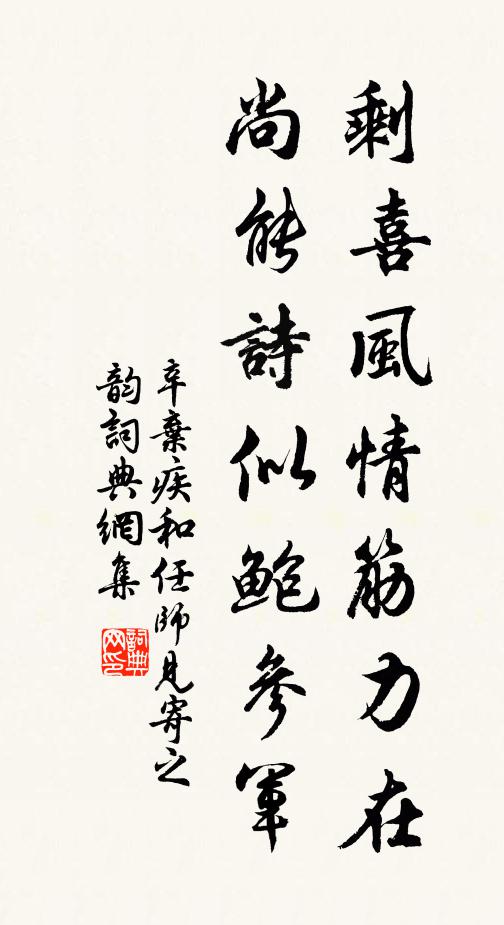 剩喜風情筋力在
尚能詩似鮑參軍
辛棄疾和任師見寄之
韵詞典網集
詞典网印